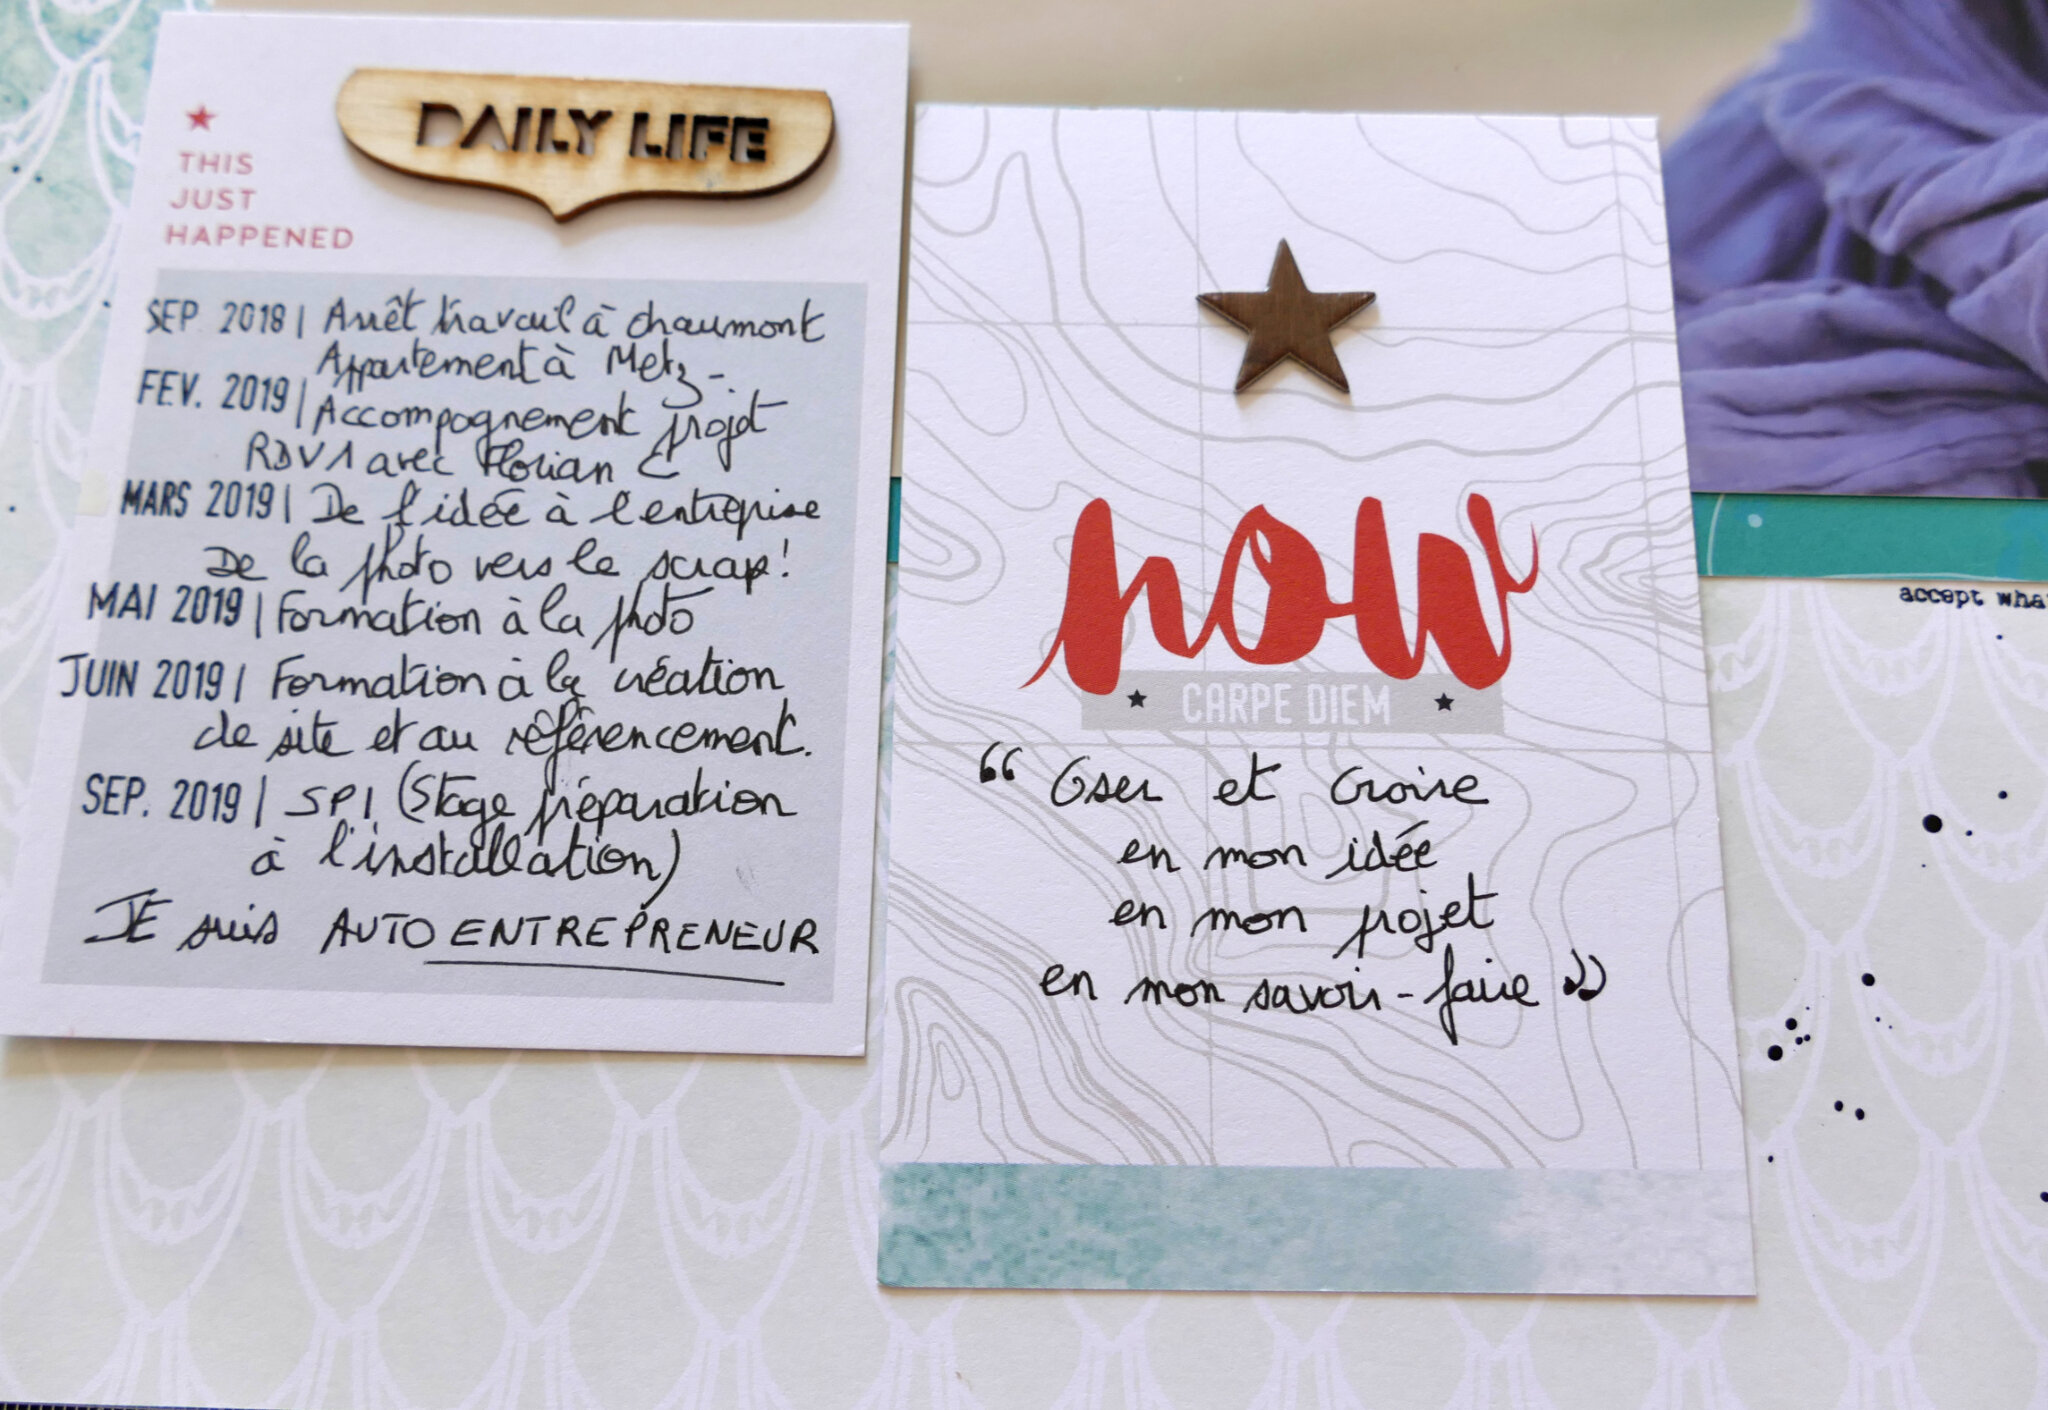 DAILY LIFE
★ THIS
JUST
HAPPENED
SEP. 2018 | Arrêt travail à chaumont
Appartement à Metz -
FEV. 2019 | Accompagnement projet
RDV 1 avec Florian C
MARS 2019 | De l'idée à l'entreprise
De la photo vers le scrap !
MAI 2019 | Formation à la photo
JUIN 2019 | Formation à la création
de site et au référencement.
SEP. 2019 | SPI (Stage préparation
à l'installation)
JE suis AUTO ENTREPRENEUR
now
★ CARPE DIEM ★
“ Oser et Croire
en mon idée
en mon projet
en mon savoir-faire ”
accept wha